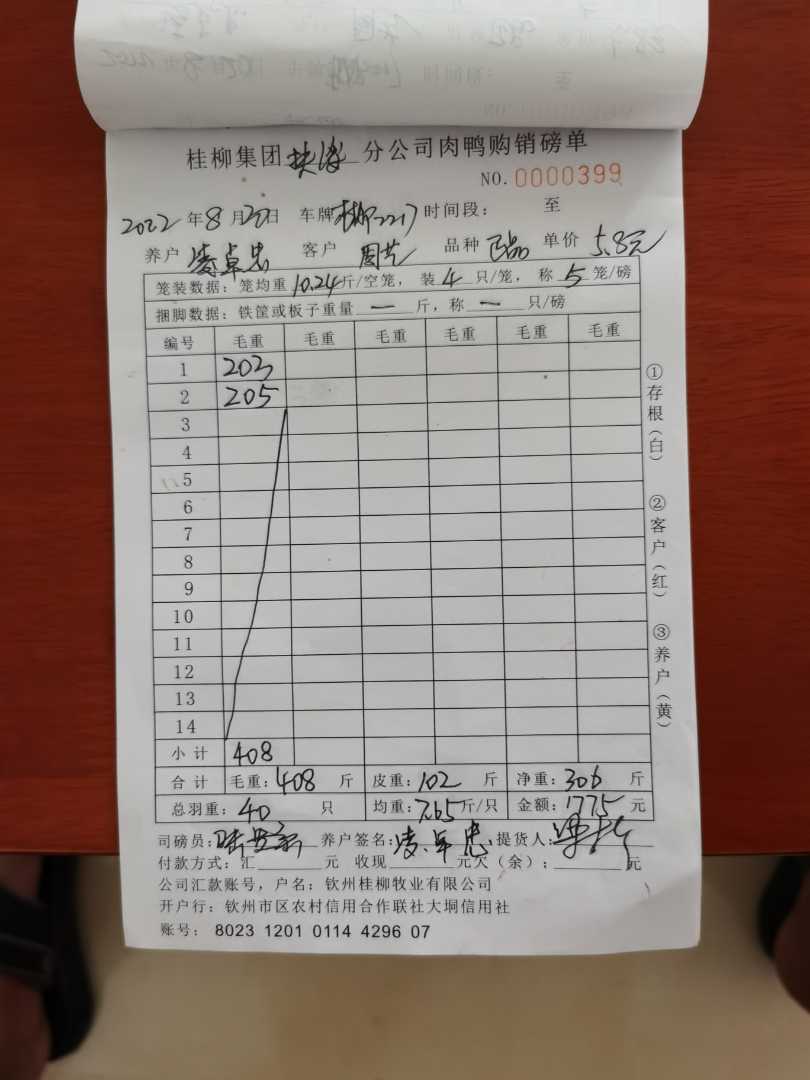 桂柳集团 扶绥 分公司肉鸭购销磅单
NO. 0000399
2022 年 8 月 20 日 车牌 2217 时间段: 至
养户 凌卓忠 客户 周艺 品种 单价 5.8元
笼装数据: 笼均重 10.24 斤/空笼, 装 4 只/笼, 称 5 笼/磅
捆脚数据: 铁筐或板子重量 一 斤, 称 一 只/磅
编号 毛重 毛重 毛重 毛重 毛重 毛重
1 203
2 205
3
4
5
6
7
8
9
10
11
12
13
14
小计 408
合计 毛重: 408 斤 皮重: 102 斤 净重: 306 斤
总羽重: 40 只 均重: 7.65 斤/只 金额: 1775 元
司磅员: 养户签名: 凌卓忠 提货人:
付款方式: 汇 元 收现 元 欠(余): 元
公司汇款账号, 户名: 钦州桂柳牧业有限公司
开户行: 钦州市区农村信用合作联社大垌信用社
账号: 8023 1201 0114 4296 07
①存根(白) ②客户(红) ③养户(黄)